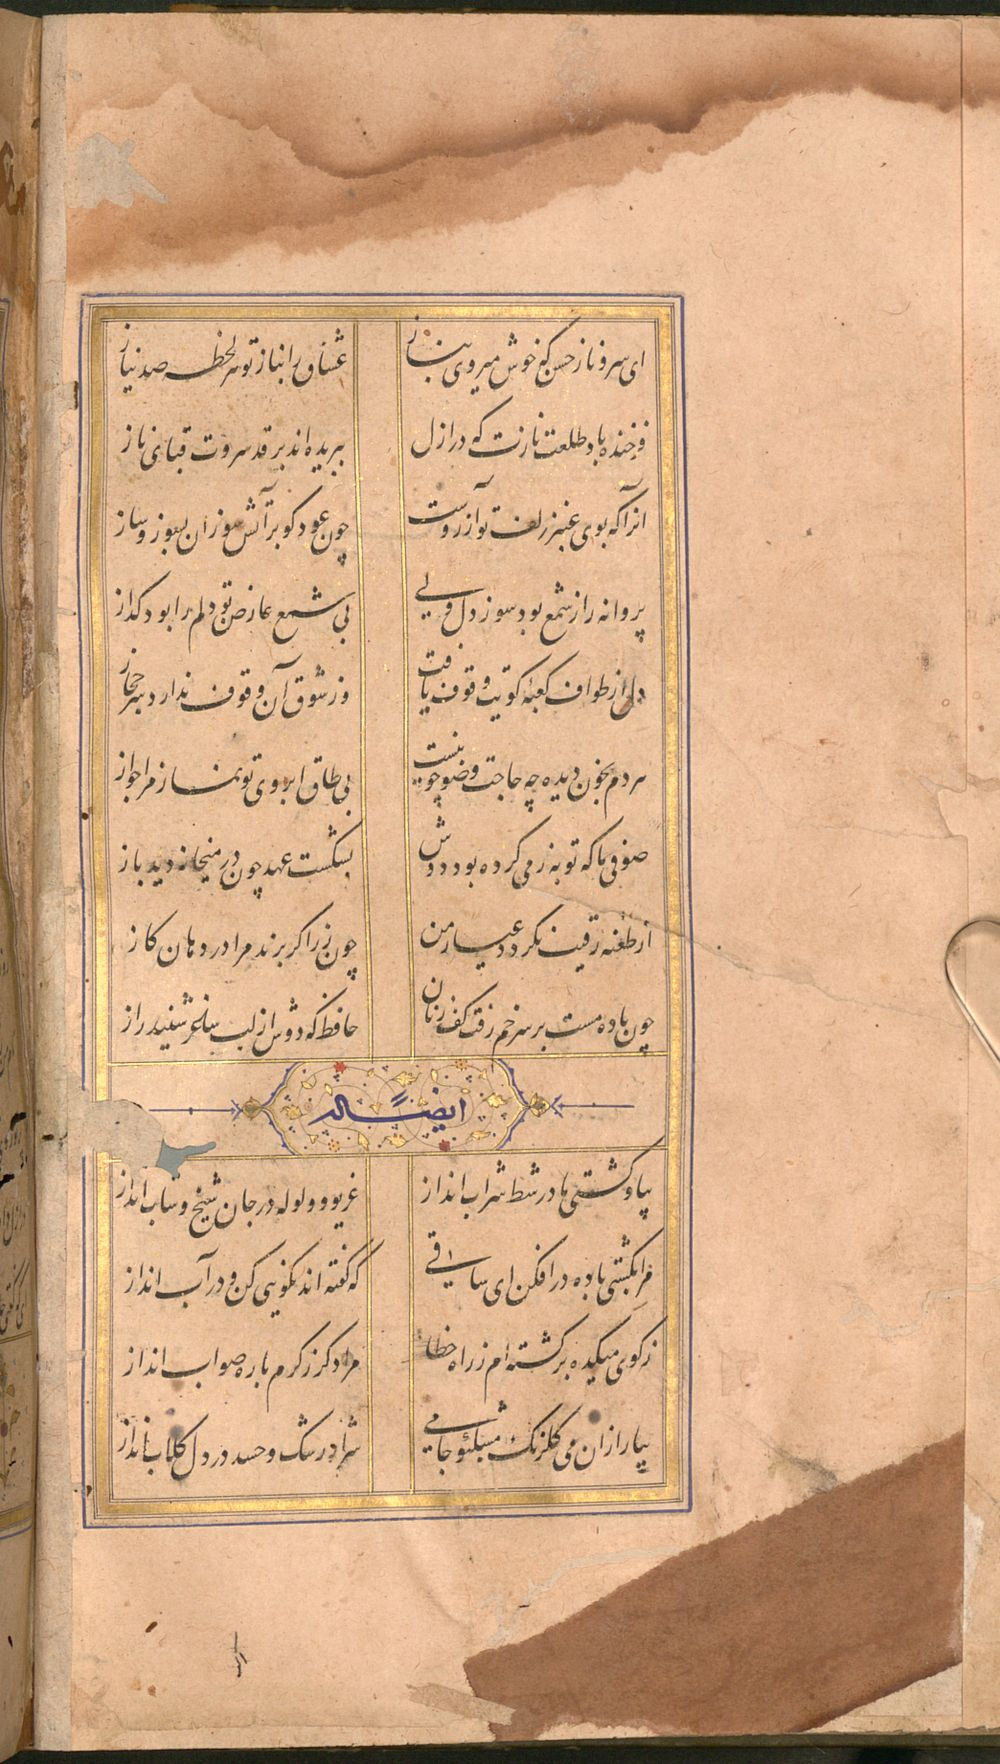 ای سرو ناز حسن که خوش میروی بناز
عشاق را بناز تو هر لحظه صد نیاز
فرخنده باد طلعت نازت که در ازل
ببریده اند بر قد سروت قبای ناز
انرا که بوی عنبر زلف تو آرزوست
چون عود کو بر آتش سوزان بسوز و ساز
پروانه را ز شمع بود سوز دل ولی
بی شمع عارض تو دلم را بود کداز
دل از طواف کعبه کویت وقوف یافت
وز شوق آن وقوف ندارد سر حجاز
هر دم بخون دیده چه حاجت وضو چو نیست
بی طاق ابروی تو نماز مرا جواز
صوفی ما که توبه ز می کرده بود دوش
بشکست عهد چون در میخانه دید باز
از طعنه رقیب نکردد عیار من
چون زر اکر برند مرا در دهان کاز
چون باده مست بر سر خم رفت کف زنان
حافظ که دوش از لب ساغر شنید راز
ایضا له
بیا و کشتی ما در شط شراب انداز
غریو و ولوله در جان شیخ و شاب انداز
مرا بکشتی باده در افکن ای ساقی
که کفته اند نکویی کن و در آب انداز
ز کوی میکده برکشته ام ز راه خطا
مرا دکر ز کرم با ره صواب انداز
بیار ازان می کلرنک مشکبو جامی
شرار رشک و حسد در دل کلاب انداز